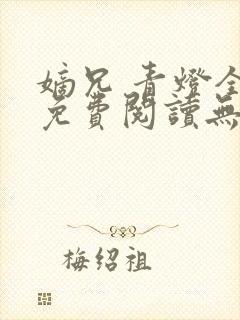 嫡兄 青燈全
免費閱讀無
梅绍祖